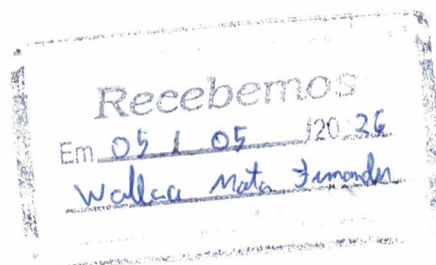 Recebemos
Em 05 / 05 /20 26
Wallace Mata Fernandes